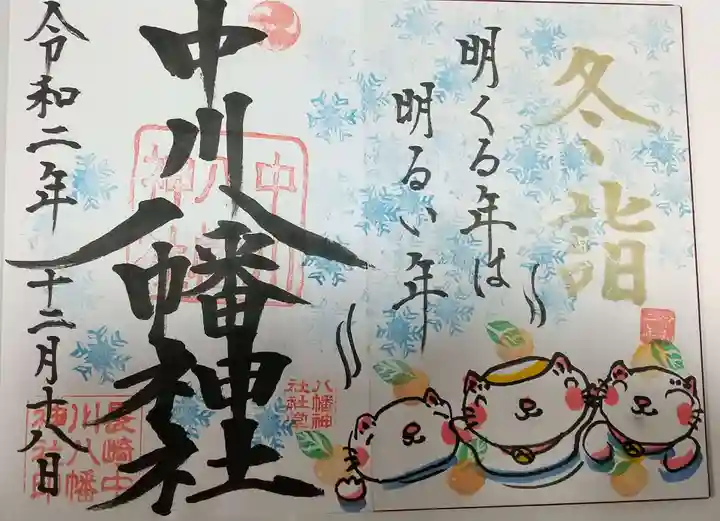 冬詣
明くる年は
明るい年
中川八幡神社
令和二年
十二月十八日
中川
八幡
神社
長崎中
川八幡
神社印